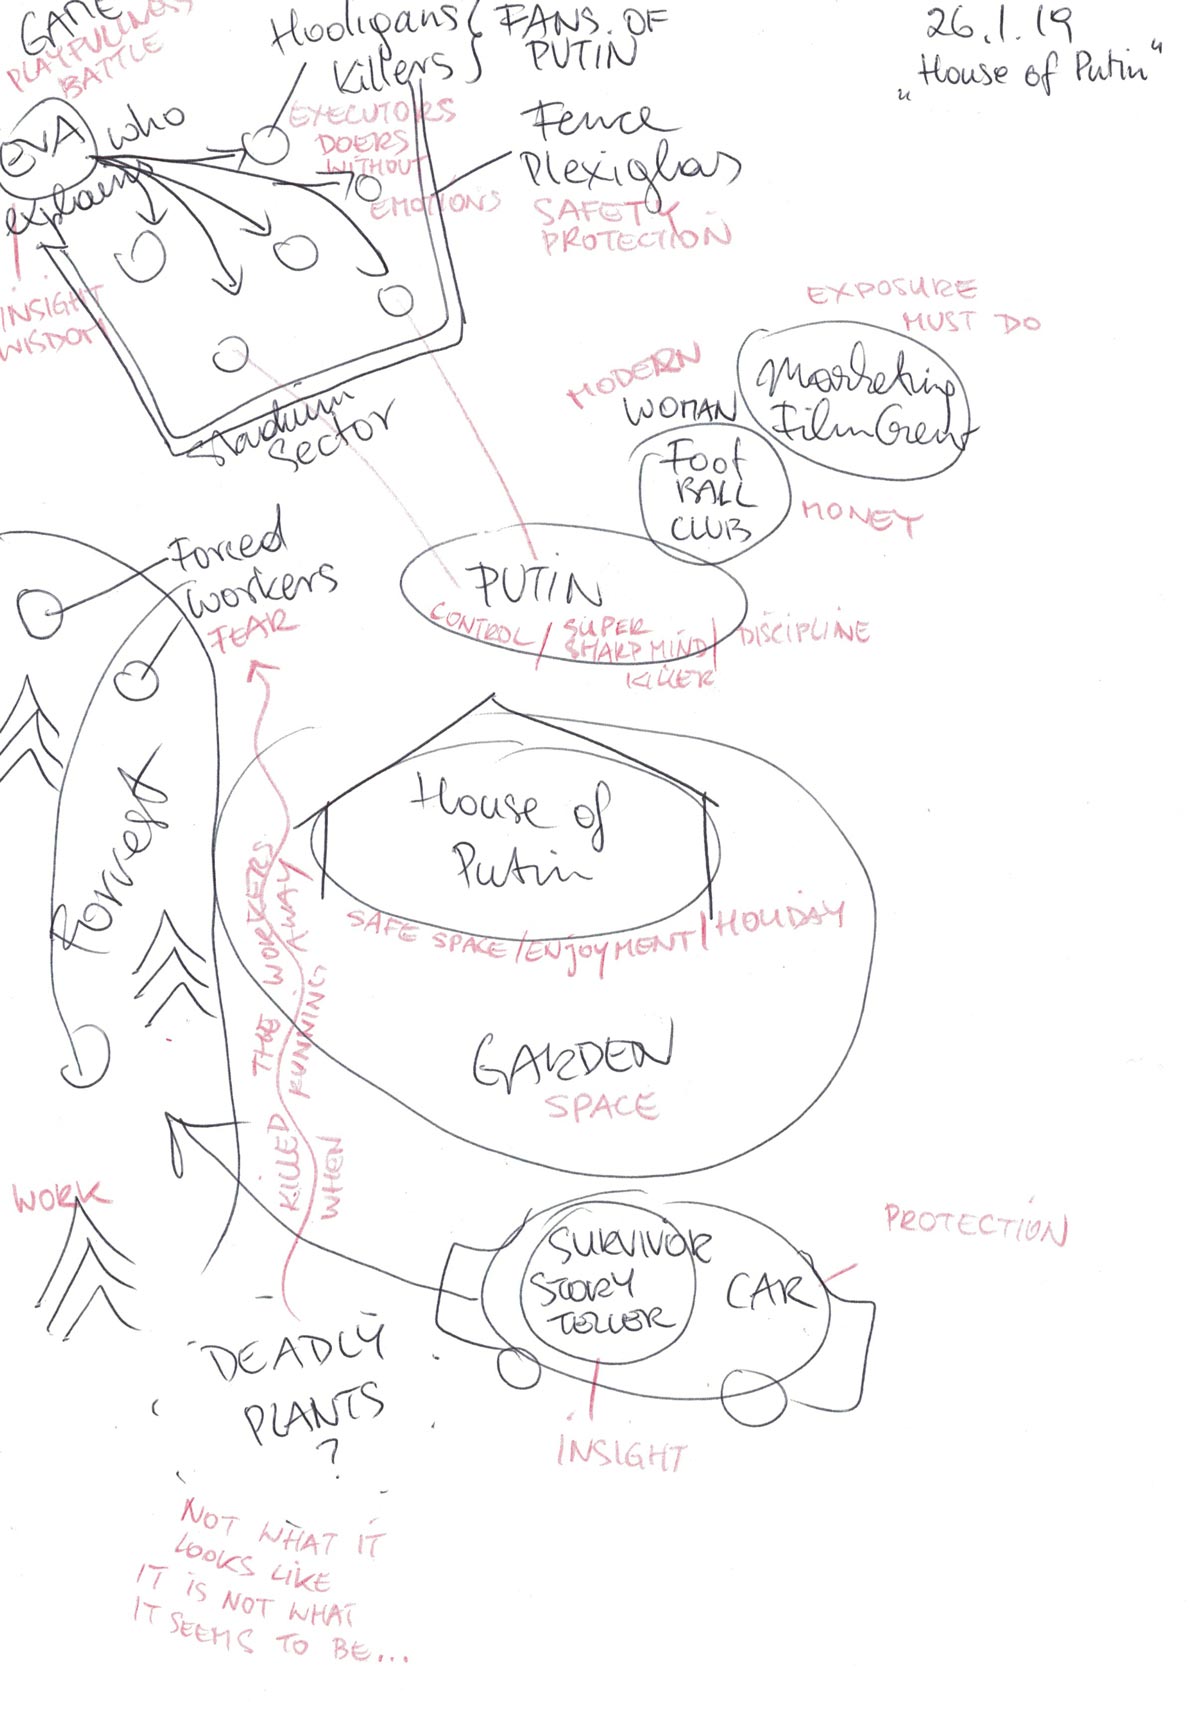 GAME
PLAYFULLNESS
BATTLE
Hooligans
Killers
FANS OF
PUTIN
26.1.19
„House of Putin“
EVA
who
explains
INSIGHT
WISDOM
EXECUTORS
DOERS
WITHOUT
EMOTIONS
Fence
Plexiglas
SAFETY
PROTECTION
Stadium
Sector
EXPOSURE
MUST DO
Marketing
Film Grent
MODERN
WOMAN
Foot
BALL
CLUB
MONEY
Forced
workers
FEAR
PUTIN
CONTROL / SUPER
SHARP MIND / DISCIPLINE
KILLER
Forrest
House of
Putin
SAFE SPACE / ENJOYMENT / HOLIDAY
KILLED THE WORKERS
WHEN RUNNING AWAY
GARDEN
SPACE
WORK
SURVIVOR
STORY
TELLER
CAR
PROTECTION
INSIGHT
DEADLY
PLANTS
?
NOT WHAT IT
LOOKS LIKE
IT IS NOT WHAT
IT SEEMS TO BE...